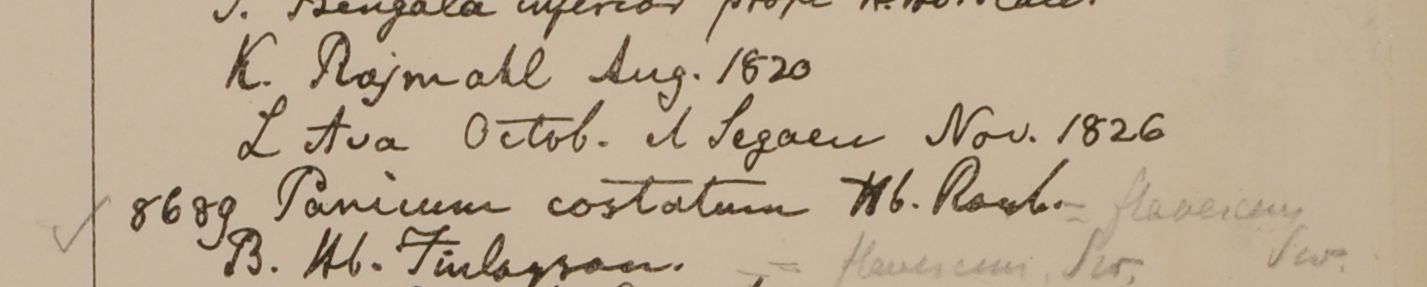 J. Bengala inferior prope
K. Rajmahl Aug. 1820
L Ava Octob. et Segaen Nov. 1826
8689 Panicum costatum Hb. Roxb. = flavescens Sw.
B. Hb. Finlayson. = flavescens, Sw.